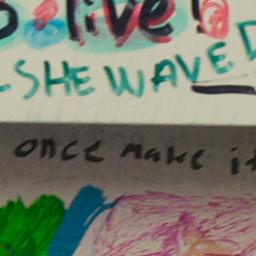 live!
SHE WAVED
once make it